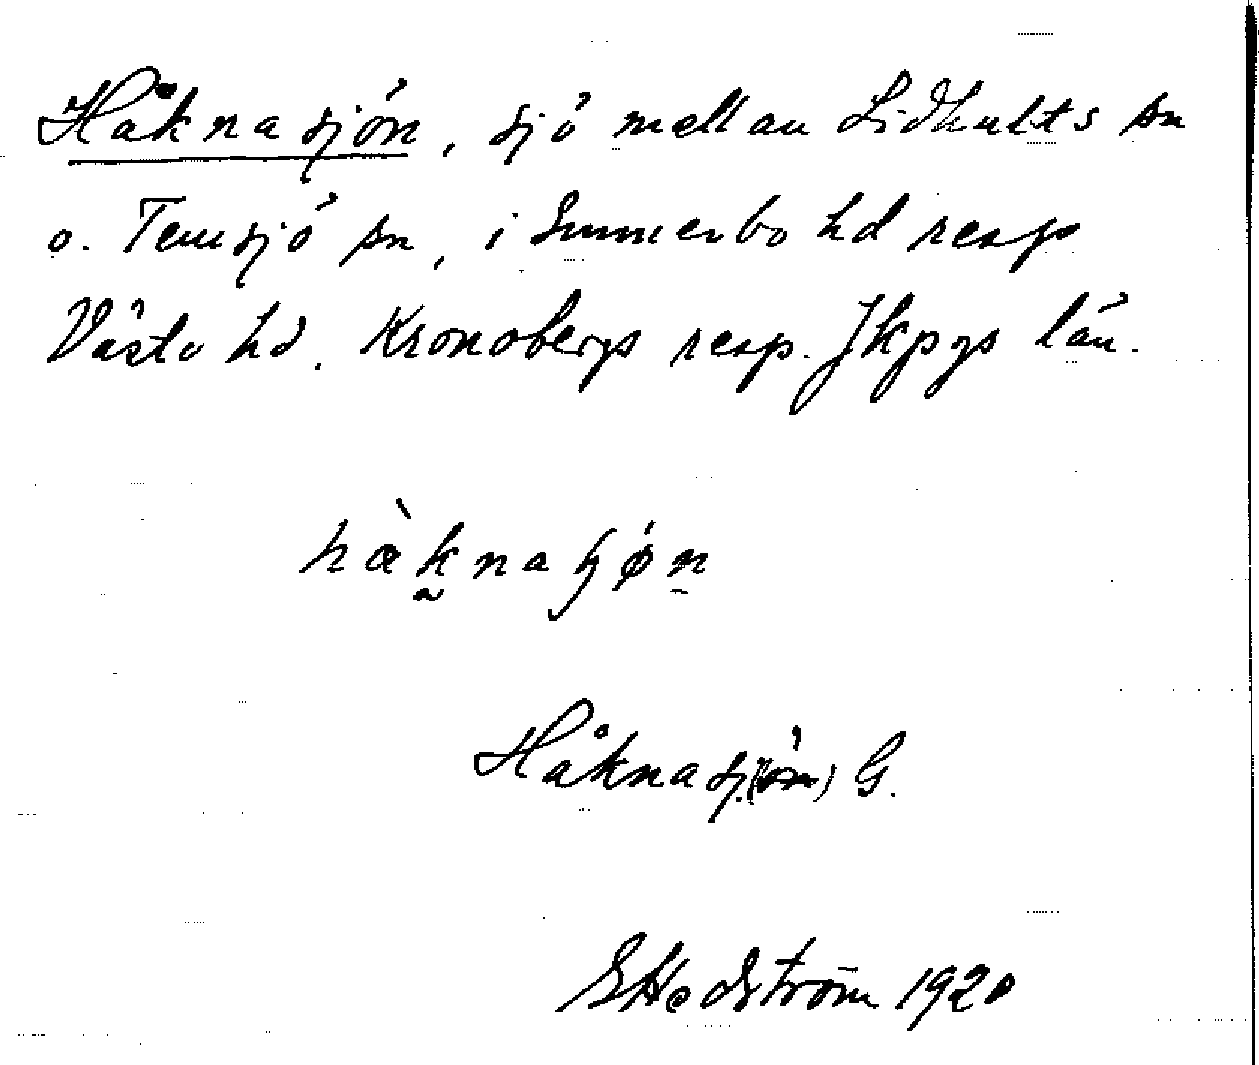 Håknasjön, sjö mellan Lidhults sn
o. Femsjö sn, i Sunnerbo hd resp
Västbo hd, Kronobergs resp. Jkpgs län.
hàknaɧøn
Håknasj(ön) G.
EHedström 1920